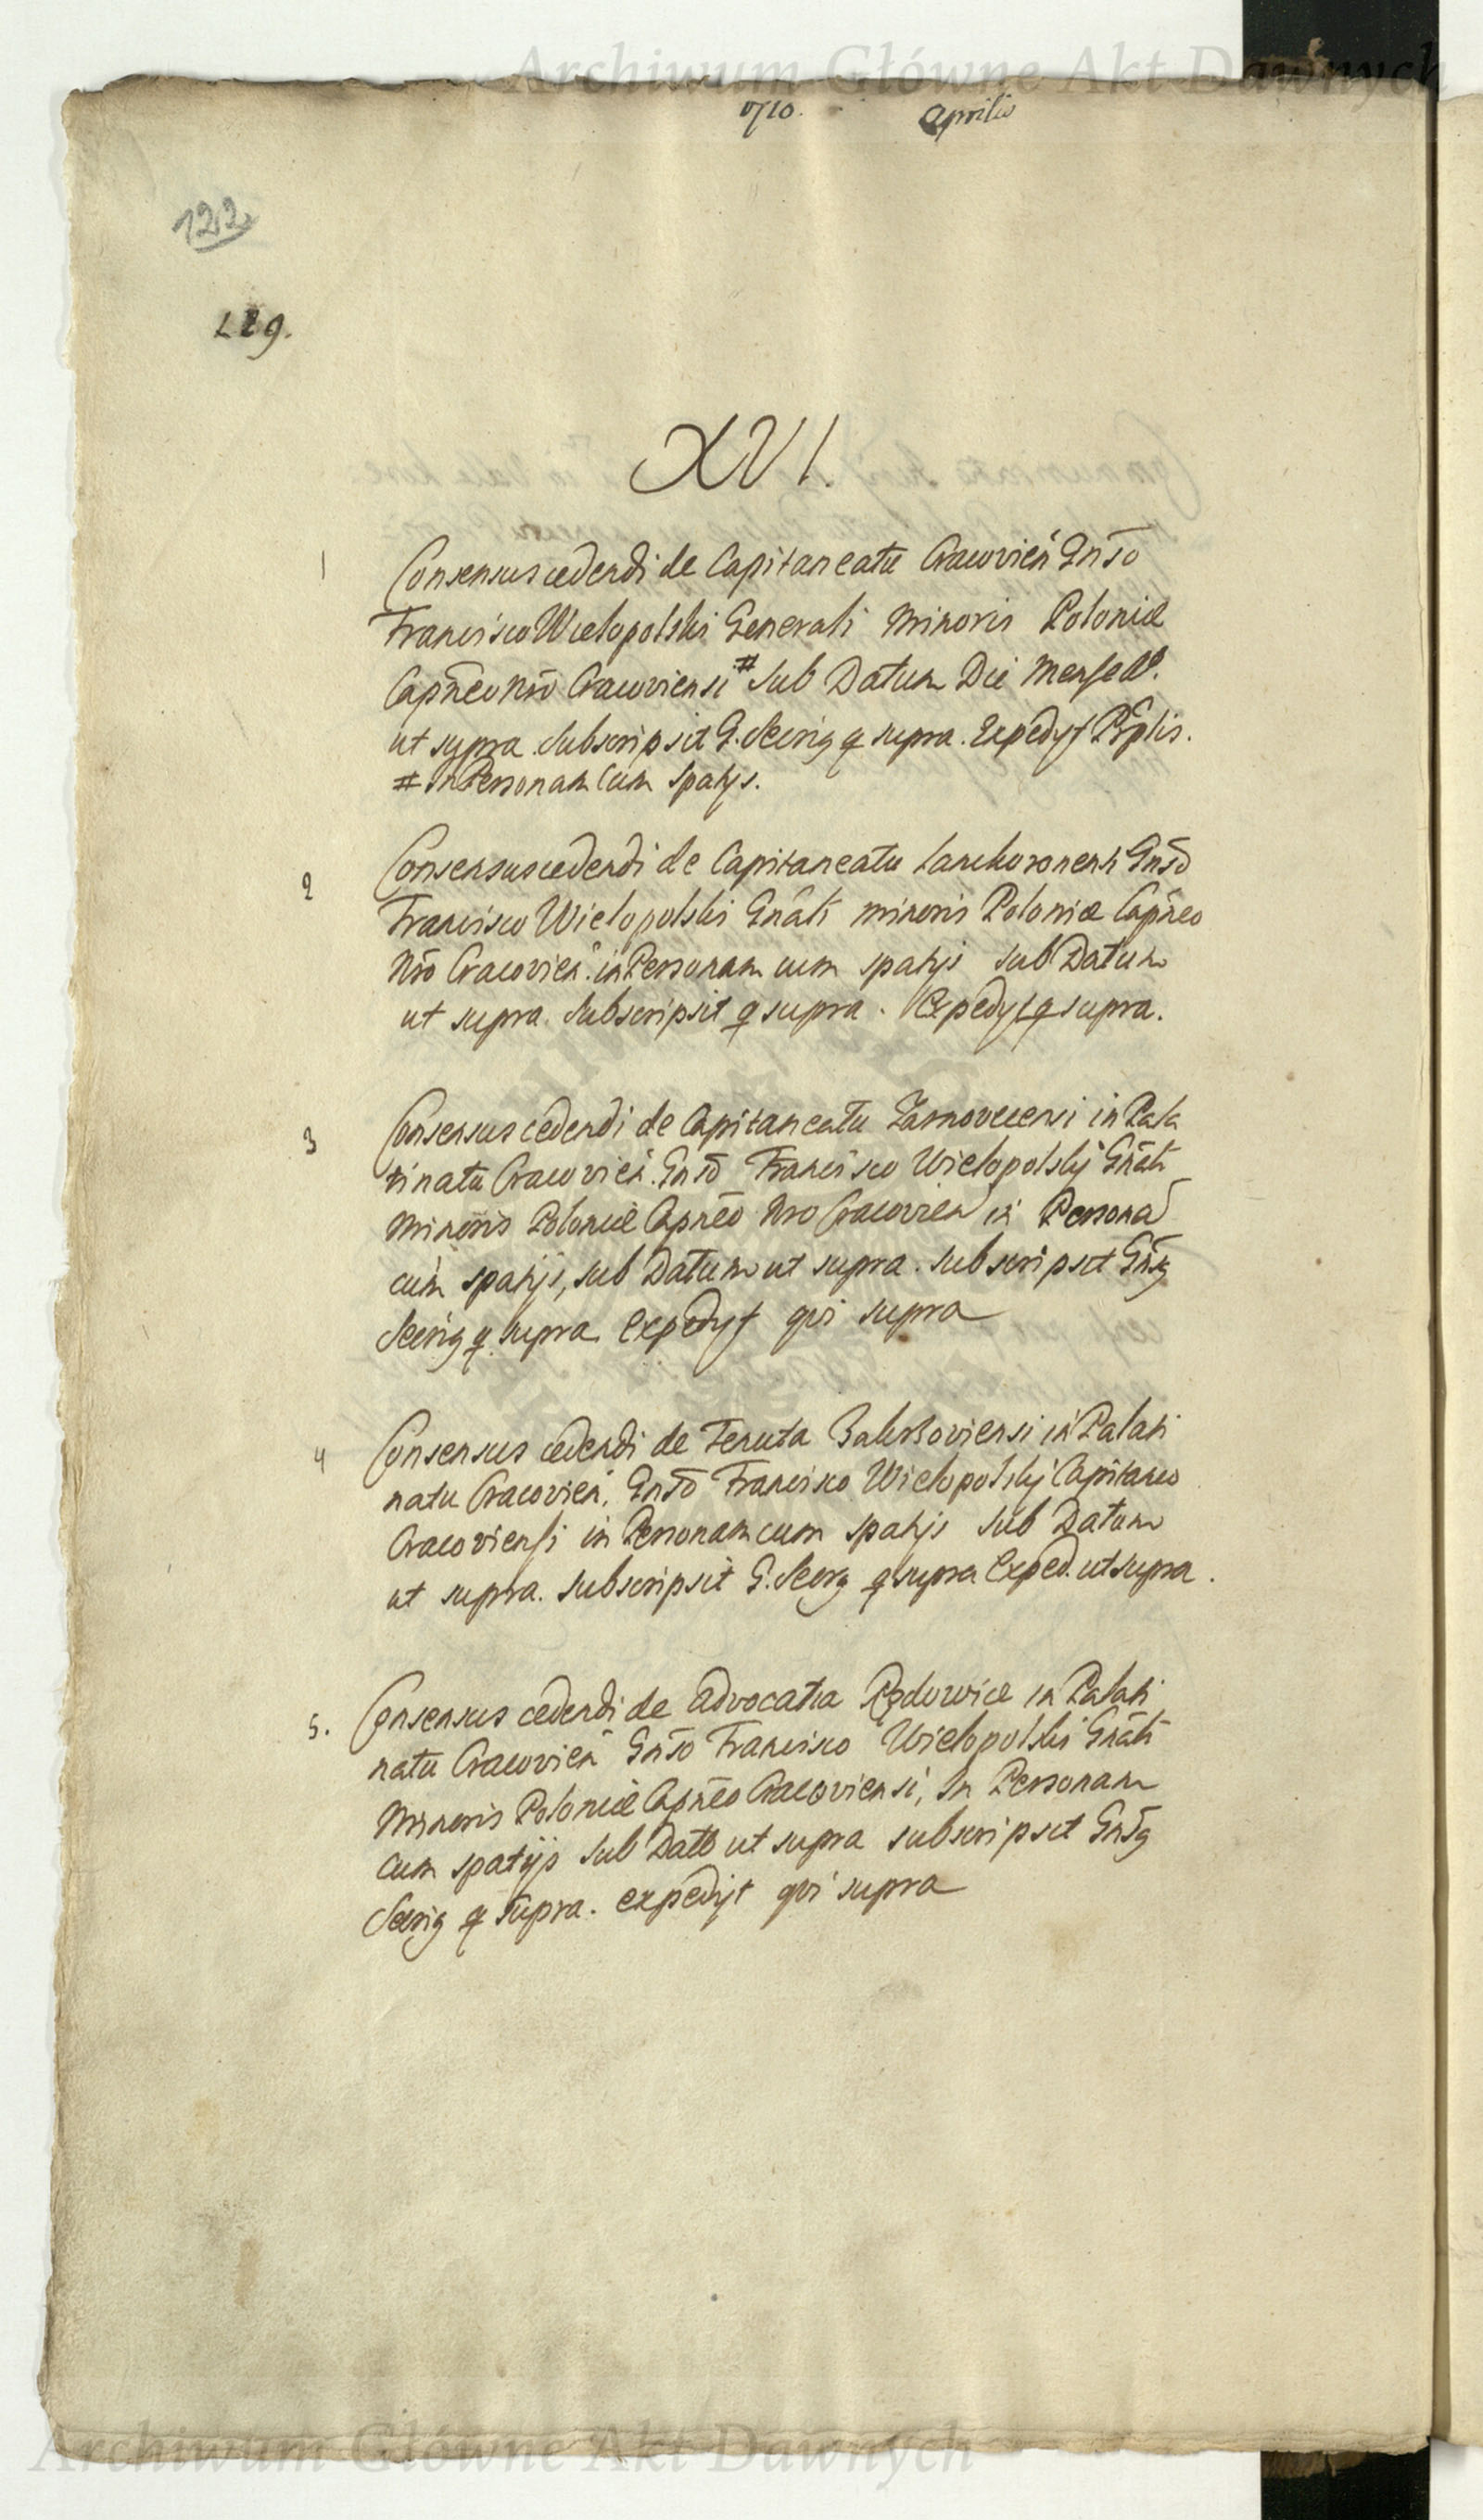 Archiwum Główne Akt Dawnych
1710. Aprilis
122
XVI.
1 Consensus cedendi de Capitaneatu Cracovien̄ Gnšo
Francisco Wielopolski Generali Minoris Poloniæ
Capn̄eo Nrō Cracoviensi # Sub Datum Die Mense
ut supra. Subscripsit G. Secrig q supra. Expedyt
# in Personam Cum spatijs.
2 Consensus cedendi de Capitaneatu Lanckoronensi Gnšo
Francisco Wielopolski Gnāli minoris Poloniæ Capn̄eo
Nrō Cracovien̄. in Personam cum spatijs sub Datum
ut supra. Subscripsit q supra. Expedyt q supra.
3 Consensus cedendi de Capitaneatu Zarnovecensi in Pala
tinatu Cracovien̄. Gnšo Francisco Wielopolskj Gnāli
Minoris Poloniæ Capn̄eo Nro Cracovien̄ in Personā
cum spatijs, sub Datum ut supra. subscripsit Gnšg
Secrig q supra Expedyt qui supra
4 Consensus cedendi de Tenuta in Palati
natu Cracovien̄. Gnšo Francisco Wielopolskj Capitaneo
Cracoviensi in Personam cum spatijs sub Datum
ut supra. subscripsit G. Secrg q supra Exped. ut supra.
5. Consensus cedendi de Advocatia in Palati
natu Cracovien̄ Gnšo Francisco Wielopolski Gnāli
Minoris Poloniæ Capn̄eo Cracoviensi, In Personam
cum spatijs sub Datto ut supra subscripsit Gnšg
Secrig q supra. expedijt qui supra
Archiwum Główne Akt Dawnych